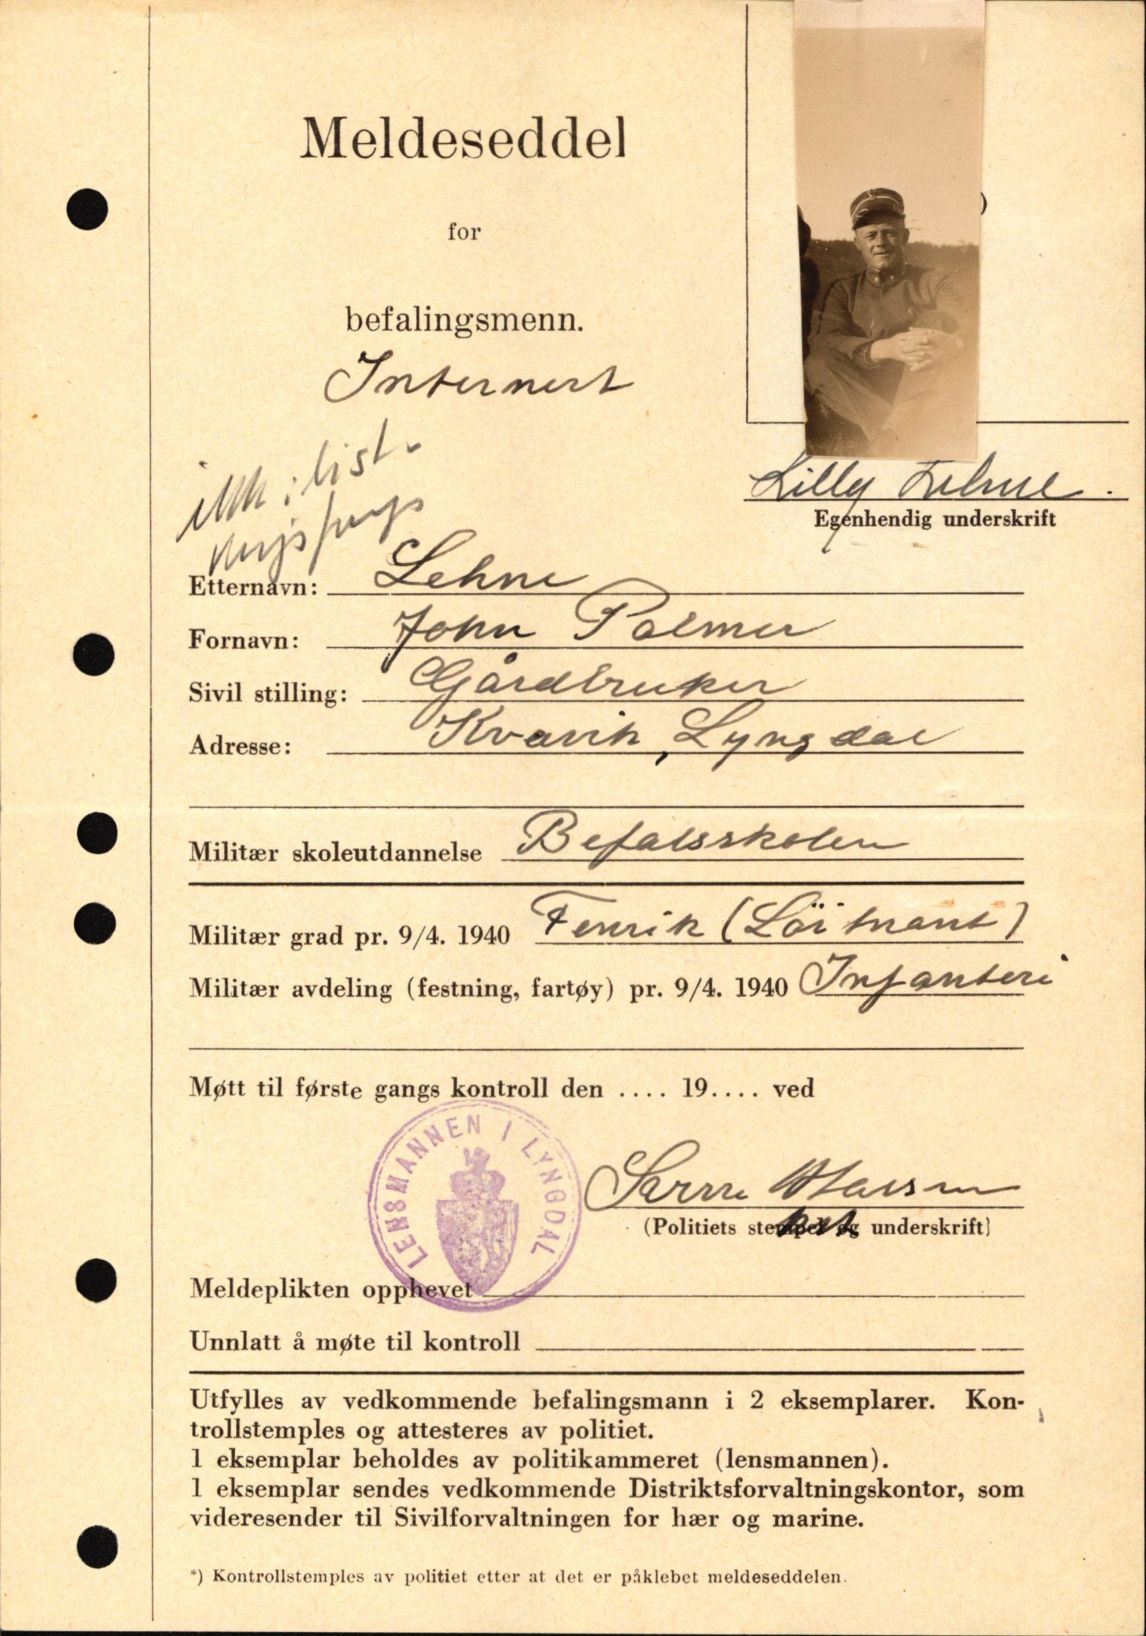 Meldeseddel
for
befalingsmenn.
Internert
)
ikke i list.
Lilly Lehne.
Egenhendig underskrift
Etternavn: Lehne
Fornavn: John Palmer
Sivil stilling: Gårdbruker
Adresse: Kvavik, Lyngdal
Militær skoleutdannelse Befalsskolen
Militær grad pr. 9/4. 1940 Fenrik (Löitnant)
Militær avdeling (festning, fartøy) pr. 9/4. 1940 Infanteri
Møtt til første gangs kontroll den .... 19.... ved
LENSMANNEN I LYNGDAL
(Politiets stempel og underskrift)
Meldeplikten opphevet
Unnlatt å møte til kontroll
Utfylles av vedkommende befalingsmann i 2 eksemplarer. Kon-
trollstemples og attesteres av politiet.
1 eksemplar beholdes av politikammeret (lensmannen).
1 eksemplar sendes vedkommende Distriktsforvaltningskontor, som
videresender til Sivilforvaltningen for hær og marine.
*) Kontrollstemples av politiet etter at det er påklebet meldeseddelen.